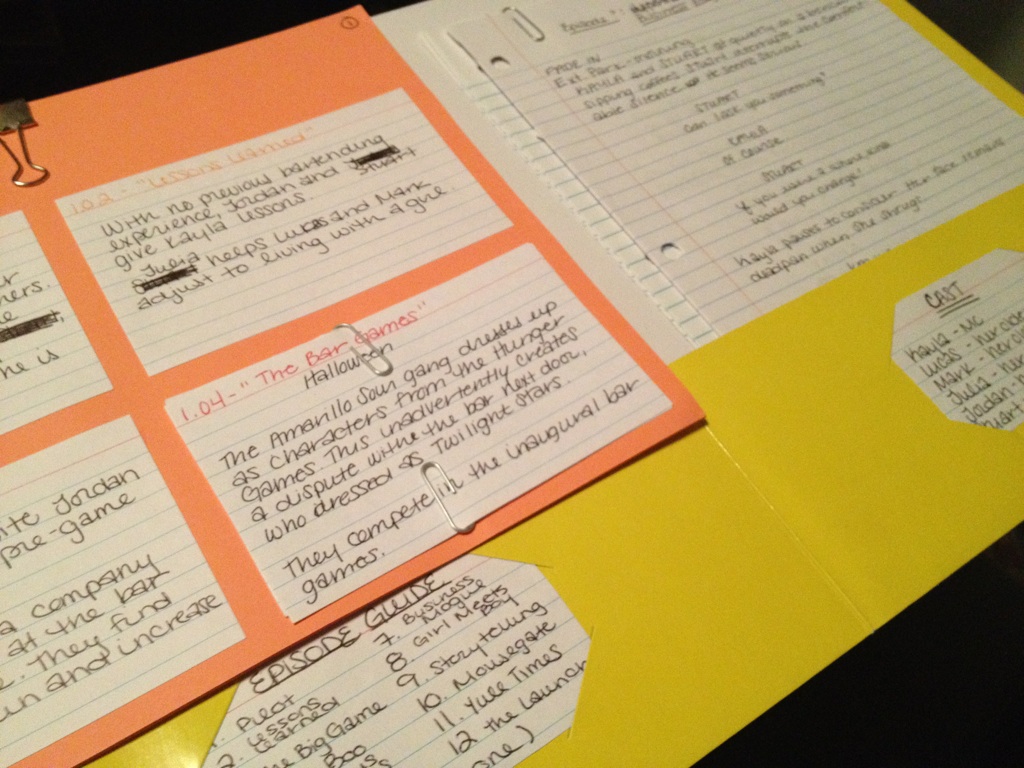 1
1.02 - "Lessons Learned"
With no previous bartending
experience, Jordan and
Stuart
give Kayla lessons.
Julia helps Lucas and Mark
adjust to living with a girl.
hers.
he is
1.04 - "The Bar Games"
Halloween
The Amarillo Sour gang dresses up
as characters from the Hunger
Games. This inadvertently creates
a dispute with the the bar next door,
who dressed as Twilight stars.
They compete in the inaugural bar
games.
Jordan
pre-game
a company
at the bar
They find
and increase
EPISODE GUIDE
1. Pilot
2. Lessons
Learned
The Big Game
Boo
7. Business
8. Girl Meets
Boy
9. Storytelling
10. Mowsegate
11. Yule Times
12 the Launch
one)
FADE IN
Ext. Park - morning
KAYLA and STUART sit quietly on a bench
sipping coffees.
STUART
Can I ask you something?
KAYLA
Of course
STUART
If you were a
would you change?
Kayla pauses to consider. Her face remains
deadpan when she shrugs.
CAST
Kayla - MC
Lucas - her
Mark - her
Julia - her
Jordan -